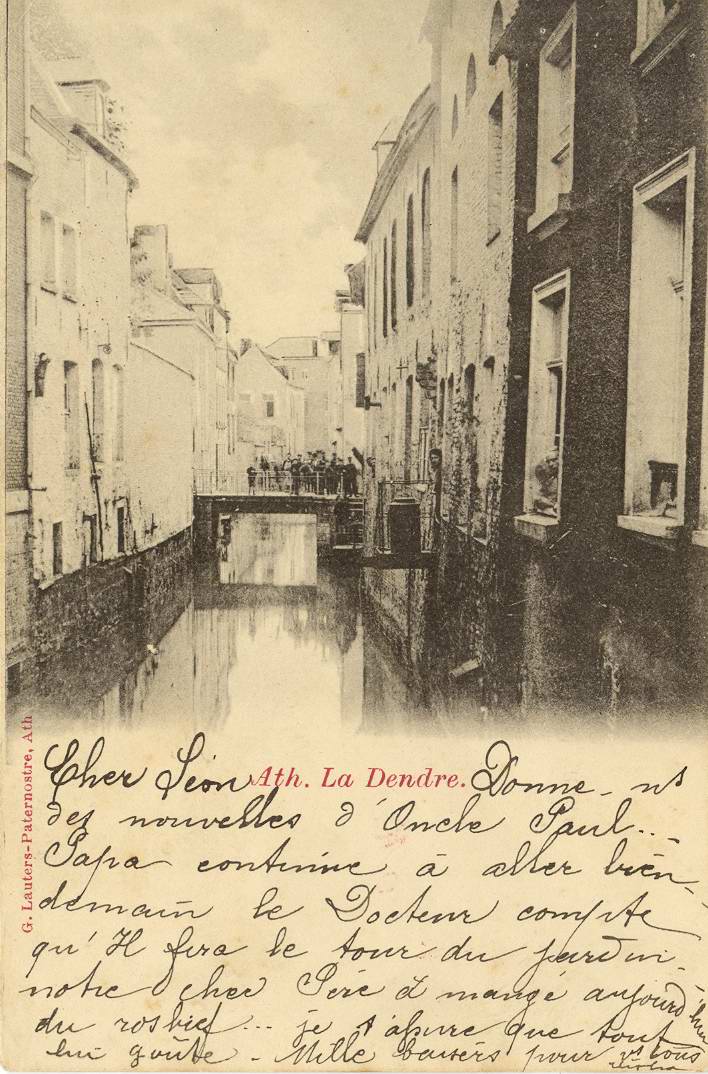 G. Lauters-Paternostre, Ath
Ath. La Dendre.
Cher Léon Donne-ns
des nouvelles d'Oncle Paul...
Papa continue à aller bien.
demain le Docteur compte
qu'Il fera le tour du jardin.
notre cher Père a mangé aujourd'hui
du rosbief... je t'assure que tout
lui goûte - Mille baisers pour vs tous